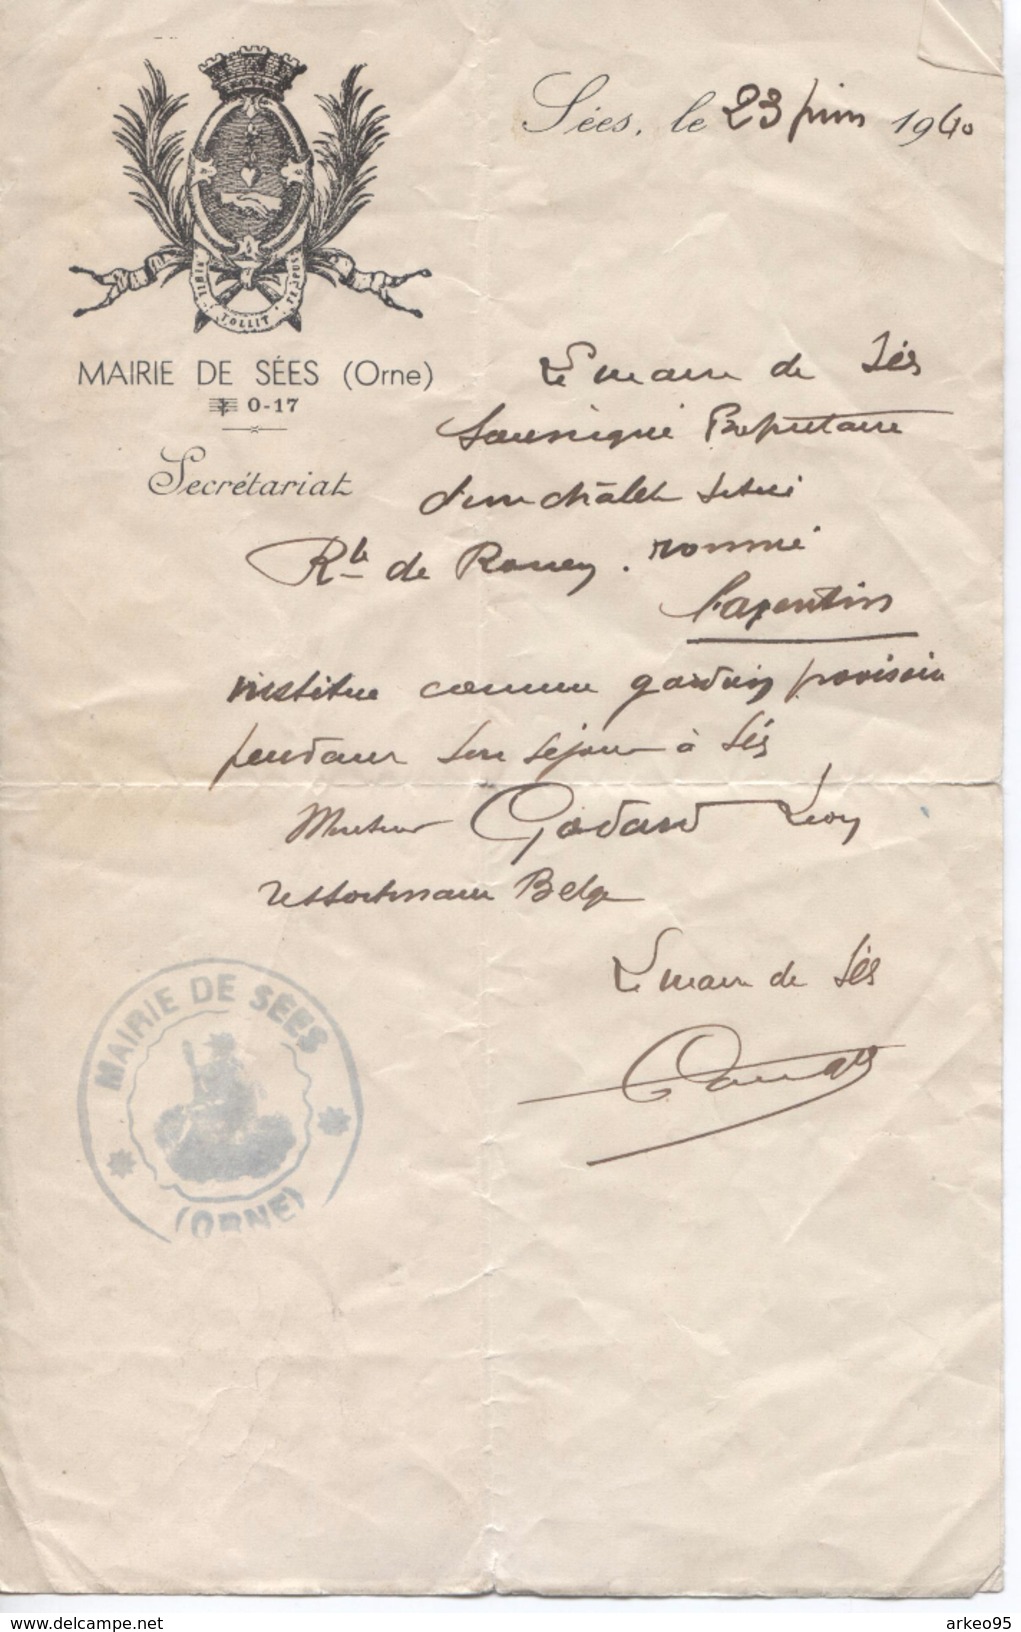 Sées, le 23 juin 1940
NIHIL TOLLIT TEMPUS
MAIRIE DE SÉES (Orne)
0-17
Secrétariat
Le maire de Sées
soussigné Propriétaire
d'un châlet situé
Rte de Rouen. nommé
institue comme gardien provisoire
pendant son séjour à Sées
Monsieur Godard Léon
ressortissant Belge
Le maire de Sées
MAIRIE DE SÉES
(ORNE)
www.delcampe.net
arkeo95